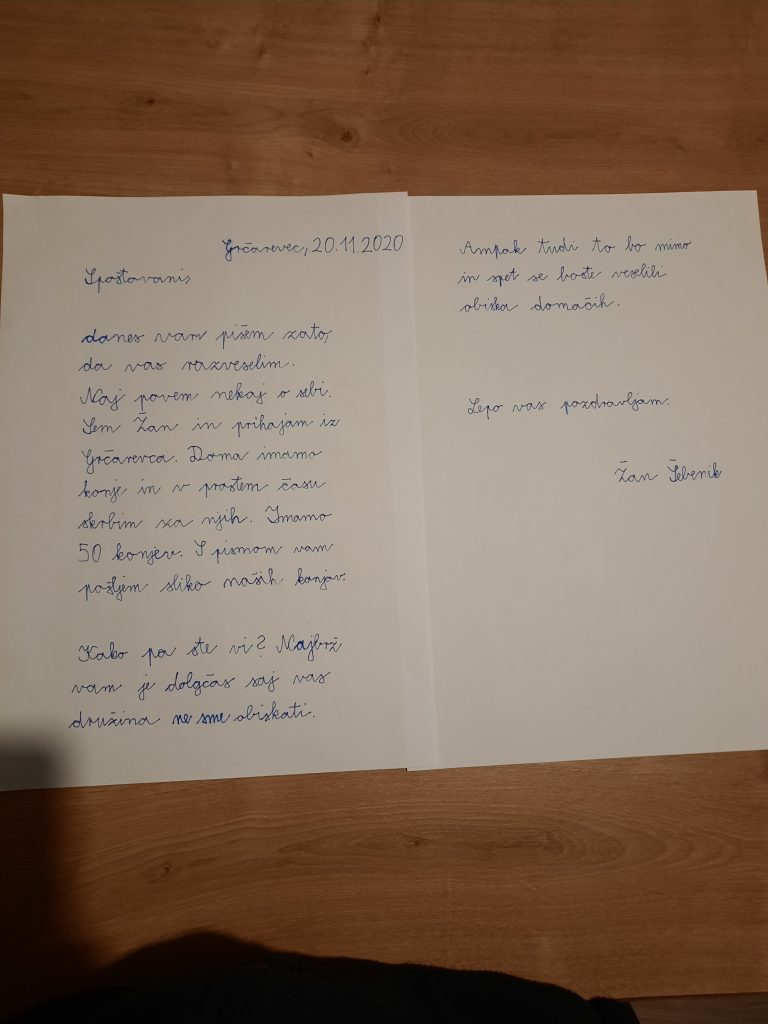 Grčarevec, 20.11.2020
Spoštovani,
danes vam pišem zato,
da vas razveselim.
Naj povem nekaj o sebi.
Sem Žan in prihajam iz
Grčarevca. Doma imamo
konje in v prostem času
skrbim za njih. Imamo
50 konjev. S pismom vam
pošljem sliko naših konjev.
Kako pa ste vi? Najbrž
vam je dolgčas saj vas
družina ne sme obiskati.
Ampak tudi to bo mimo
in spet se boste veselili
obiska domačih.
Lepo vas pozdravljam.
Žan Šebenik